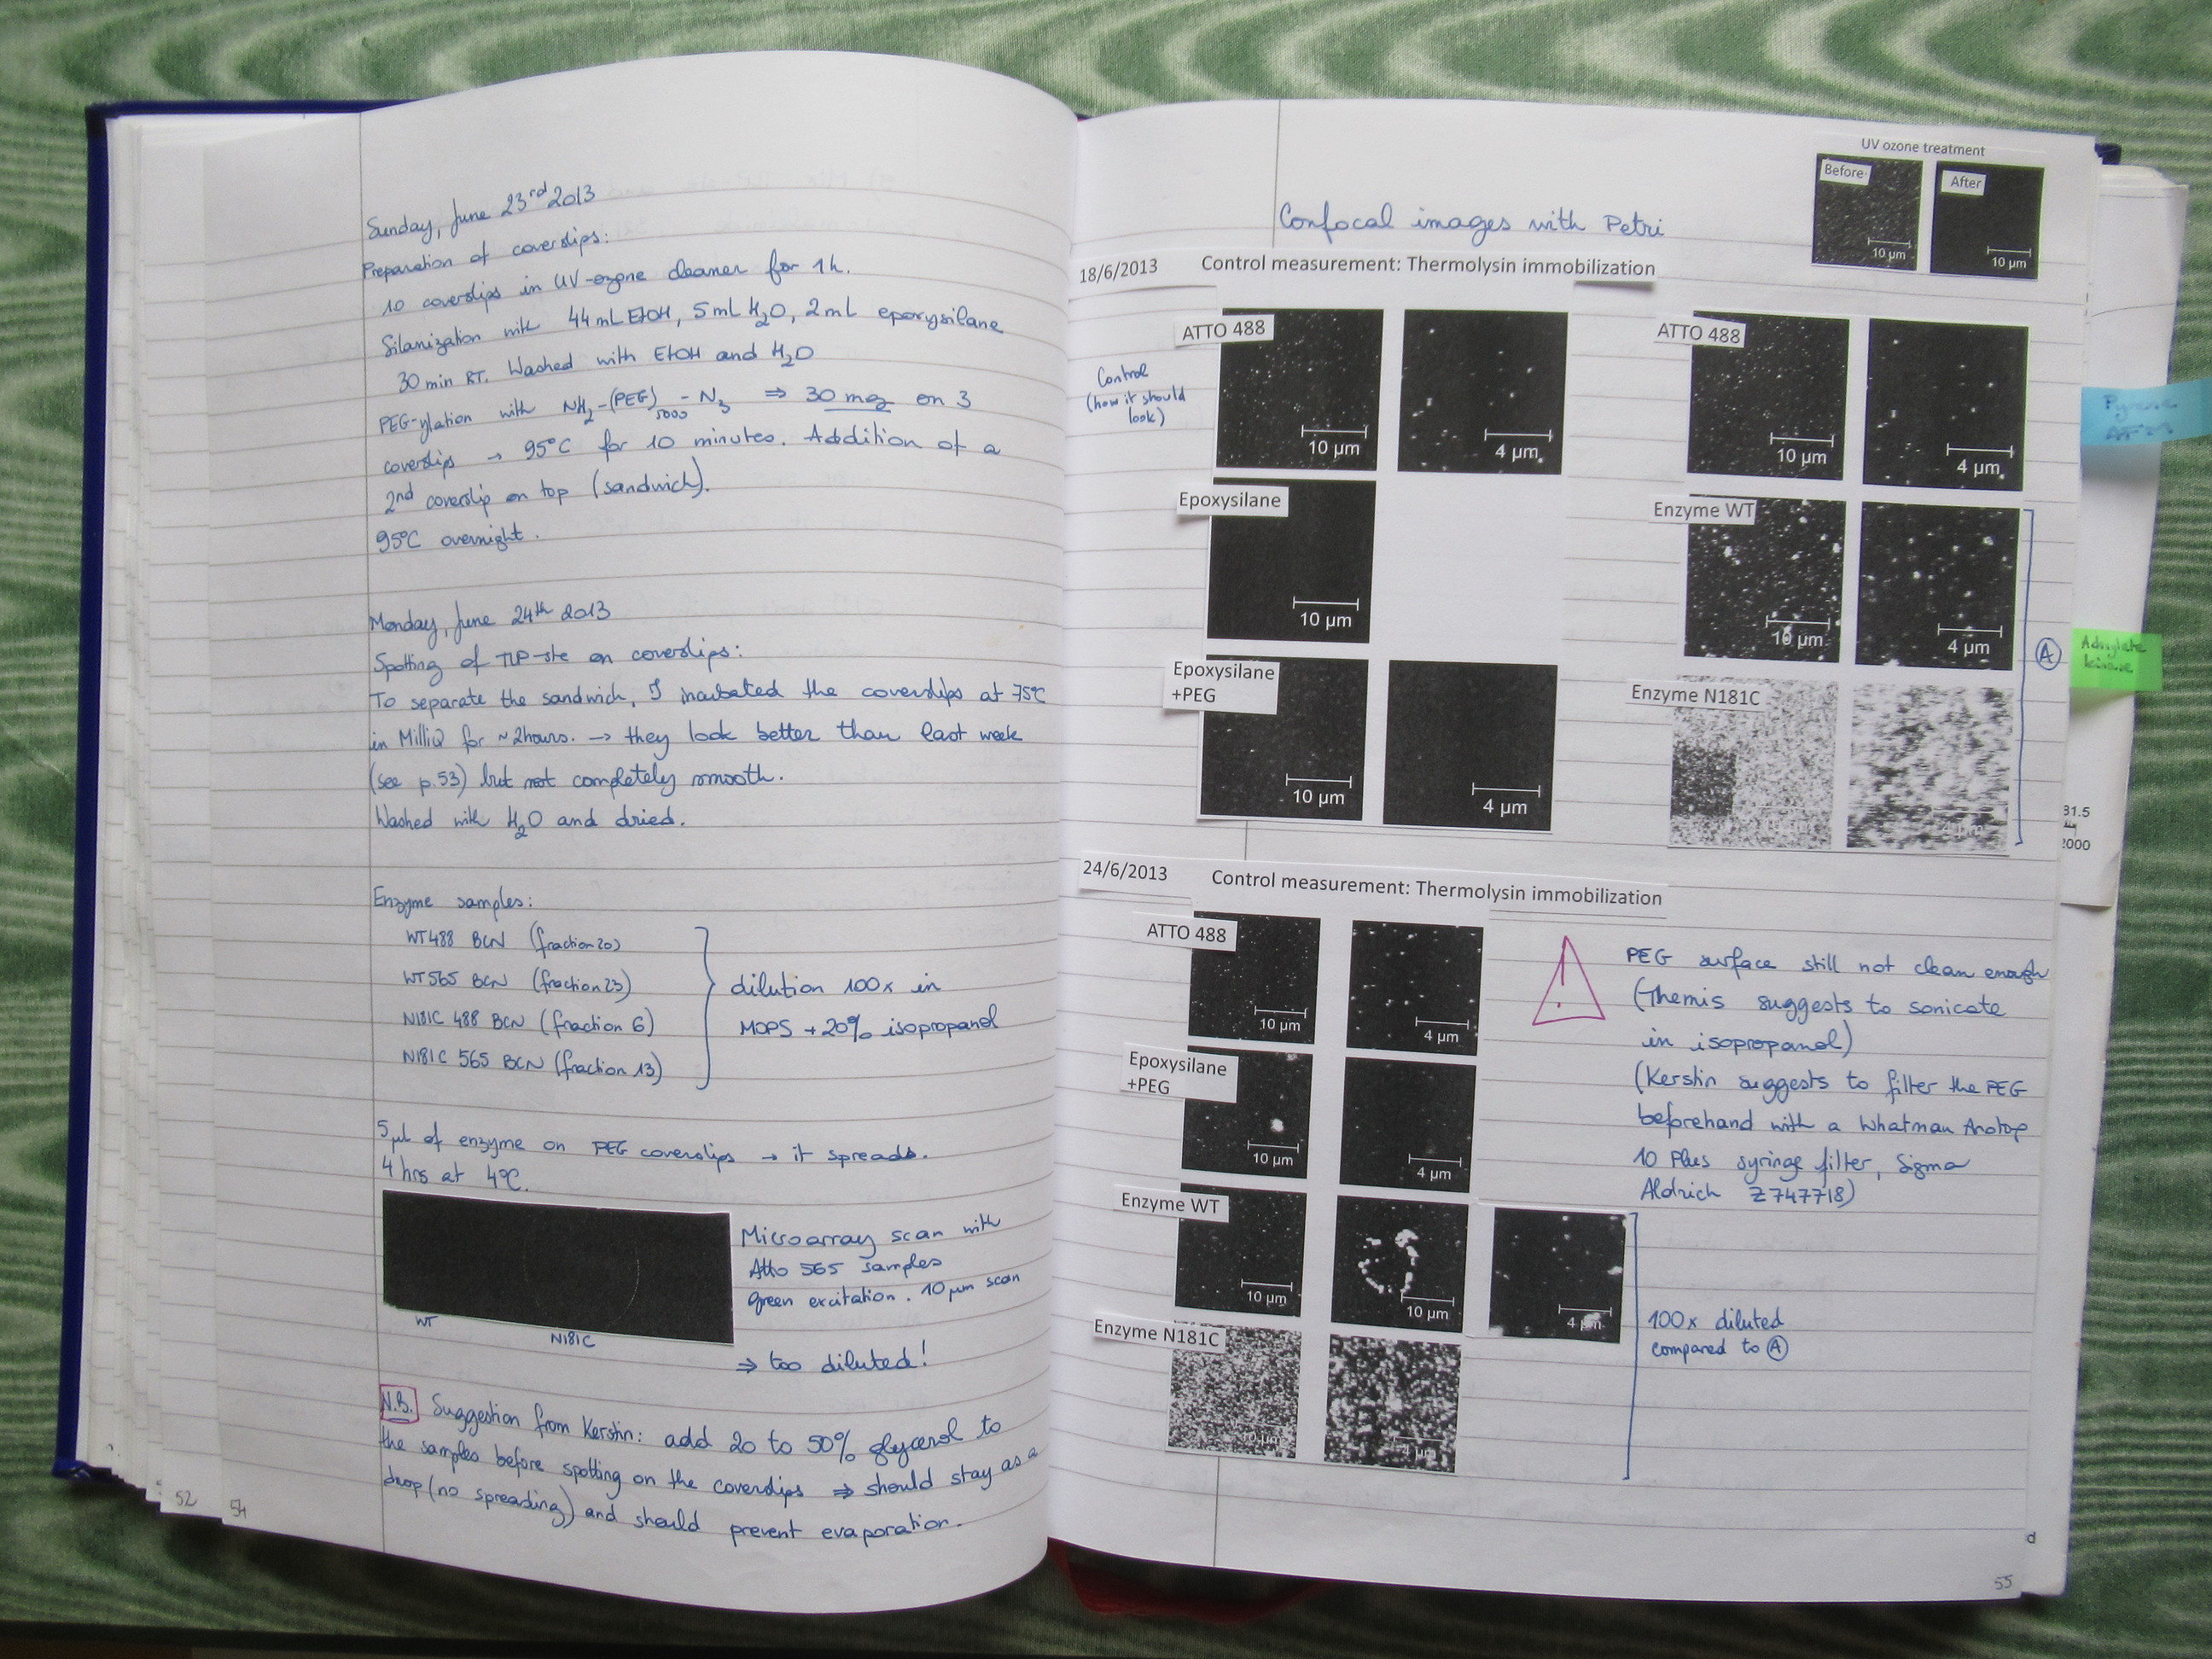 Sunday, June 23rd 2013
Preparation of coverslips:
10 coverslips in UV-ozone cleaner for 1h.
Silanization with 44 mL EtOH, 5 mL H2O, 2 mL epoxysilane
30 min RT. Washed with EtOH and H2O
PEG-ylation with NH2-(PEG)5000-N3 ⇒ 30 mg on 3
coverslips → 95°C for 10 minutes. Addition of a
2nd coverslip on top (sandwich).
95°C overnight.
Monday, June 24th 2013
Spotting of TLP-ste on coverslips:
To separate the sandwich, I incubated the coverslips at 75°C
in MilliQ for ~2hours. → they look better than last week
(see p.53) but not completely smooth.
Washed with H2O and dried.
Enzyme samples:
WT488 BCN (fraction 20)
WT565 BCN (fraction 23)
N181C 488 BCN (fraction 6)
N181C 565 BCN (fraction 13)
dilution 100x in
MOPS + 20% isopropanol
5 µl of enzyme on PEG coverslips → it spreads.
4 hrs at 4°C.
Microarray scan with
Atto 565 samples
green excitation. 10 µm scan
WT
N181C
⇒ too diluted!
N.B. Suggestion from Kerstin: add 20 to 50% glycerol to
the samples before spotting on the coverslips ⇒ should stay as a
drop (no spreading) and should prevent evaporation.
52
54
UV ozone treatment
Before
After
10 µm
10 µm
Confocal images with Petri
18/6/2013
Control measurement: Thermolysin immobilization
Control
(how it should
look)
ATTO 488
10 µm
4 µm
ATTO 488
10 µm
4 µm
Epoxysilane
10 µm
Enzyme WT
10 µm
4 µm
Epoxysilane
+PEG
10 µm
4 µm
Enzyme N181C
A
24/6/2013
Control measurement: Thermolysin immobilization
ATTO 488
10 µm
4 µm
Epoxysilane
+PEG
10 µm
4 µm
Enzyme WT
10 µm
10 µm
4 µm
Enzyme N181C
10 µm
4 µm
!
PEG surface still not clean enough
(Themis suggests to sonicate
in isopropanol)
(Kerstin suggests to filter the PEG
beforehand with a Whatman Anotop
10 Plus syringe filter, Sigma
Aldrich Z747718)
100x diluted
compared to A
Pyrene
AFM
Adenylate
kinase
31.5
2000
d
55